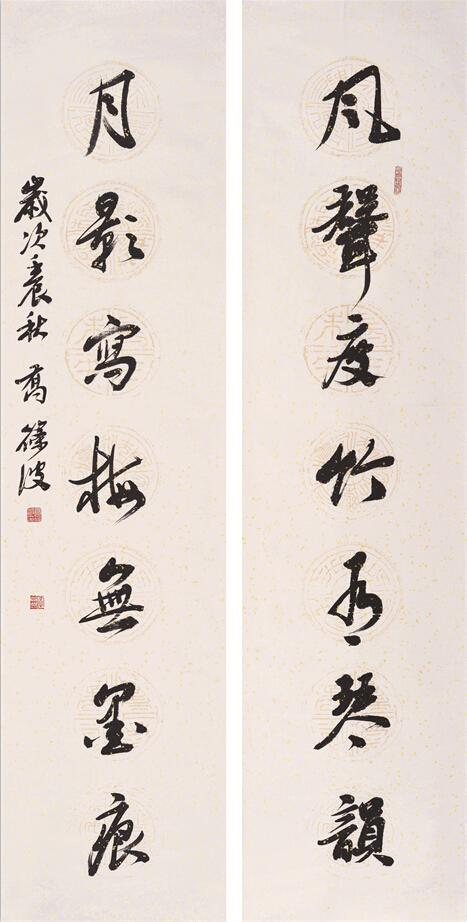 風聲度竹有琴韻
月影寫梅無墨痕
歲次壬辰秋 篠波